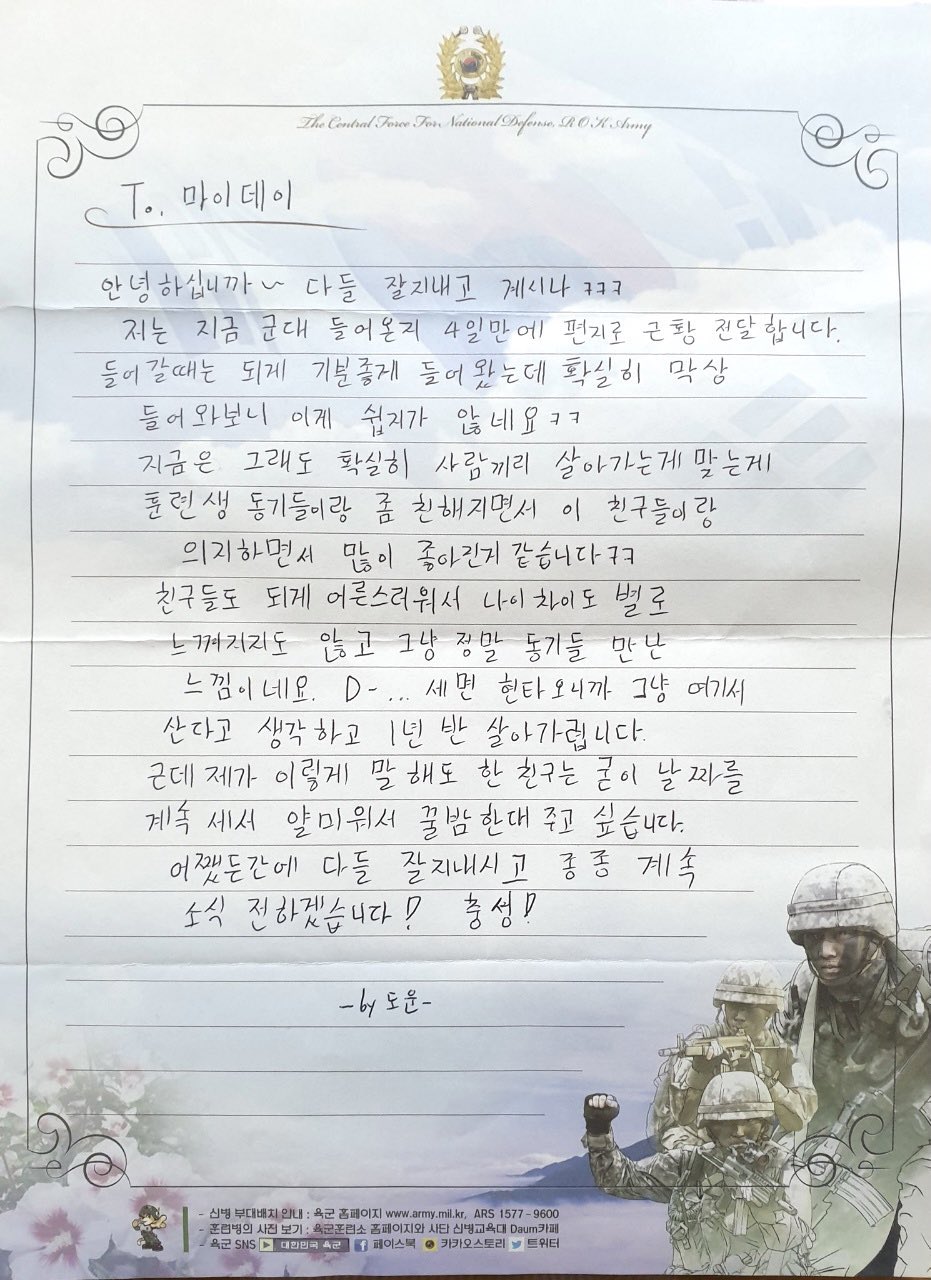 The Central Force For National Defense, R O K Army
To. 마이데이
안녕하십니까~ 다들 잘지내고 계시나 ㅋㅋㅋ
저는 지금 군대 들어온지 4일만에 편지로 근황 전달합니다.
들어갈때는 되게 기분좋게 들어왔는데 확실히 막상
들어와보니 이게 쉽지가 않네요ㅋㅋ
지금은 그래도 확실히 사람끼리 살아가는게 맞는게
훈련생 동기들이랑 좀 친해지면서 이 친구들이랑
의지하면서 많이 좋아진거 같습니다ㅋㅋ
친구들도 되게 어른스러워서 나이차이도 별로
느껴지지도 않고 그냥 정말 동기들 만난
느낌이네요. D-... 세면 현타오니까 그냥 여기서
산다고 생각하고 1년 반 살아가렵니다.
근데 제가 이렇게 말해도 한 친구는 굳이 날짜를
계속 세서 얄미워서 꿀밤한대 주고 싶습니다.
어쨌든간에 다들 잘지내시고 종종 계속
소식 전하겠습니다! 충성!
-by 도운-
- 신병 부대배치 안내 : 육군 홈페이지 www.army.mil.kr, ARS 1577-9600
- 훈련병의 사진 보기 : 육군훈련소 홈페이지와 사단 신병교육대 Daum카페
- 육군 SNS 대한민국 육군 페이스북 카카오스토리 트위터